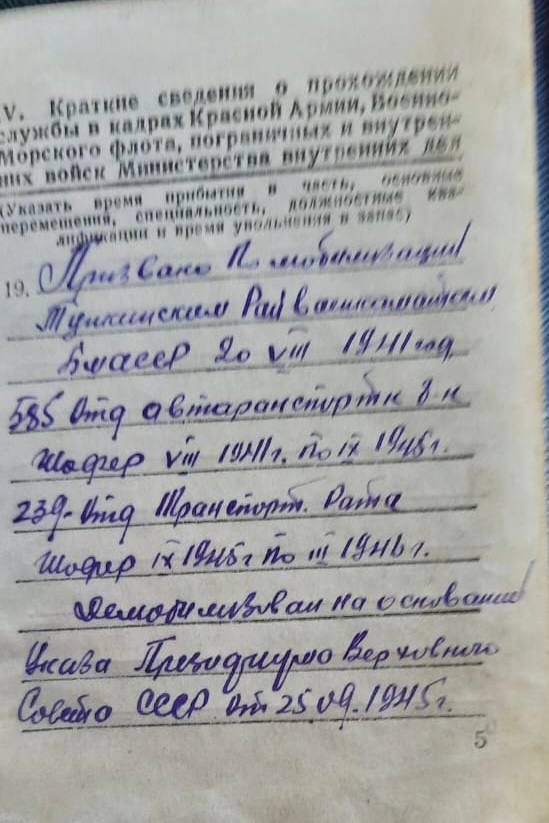 V. Краткие сведения о прохождении
службы в кадрах Красной Армии, Военно-
Морского флота, пограничных и внутрен-
них войск Министерства внутренних дел
(Указать время прибытия в часть, основные
перемещения, специальность, должностные ква-
лификации и время увольнения в запас)
19. Призвано По мобилизации
Тункинским Рай военкоматам
Бмасср 20 VIII 1941 год
585 Отд автаранспортн
Шофер VIII 1941г. по IX 1945г.
239-Отд Транспорт. Рата
Шофер IX 1945г по III 1946г.
Демобилизован на основании
Указа Президиума Верховного
Совета СССР От 25.09.1945г.
5